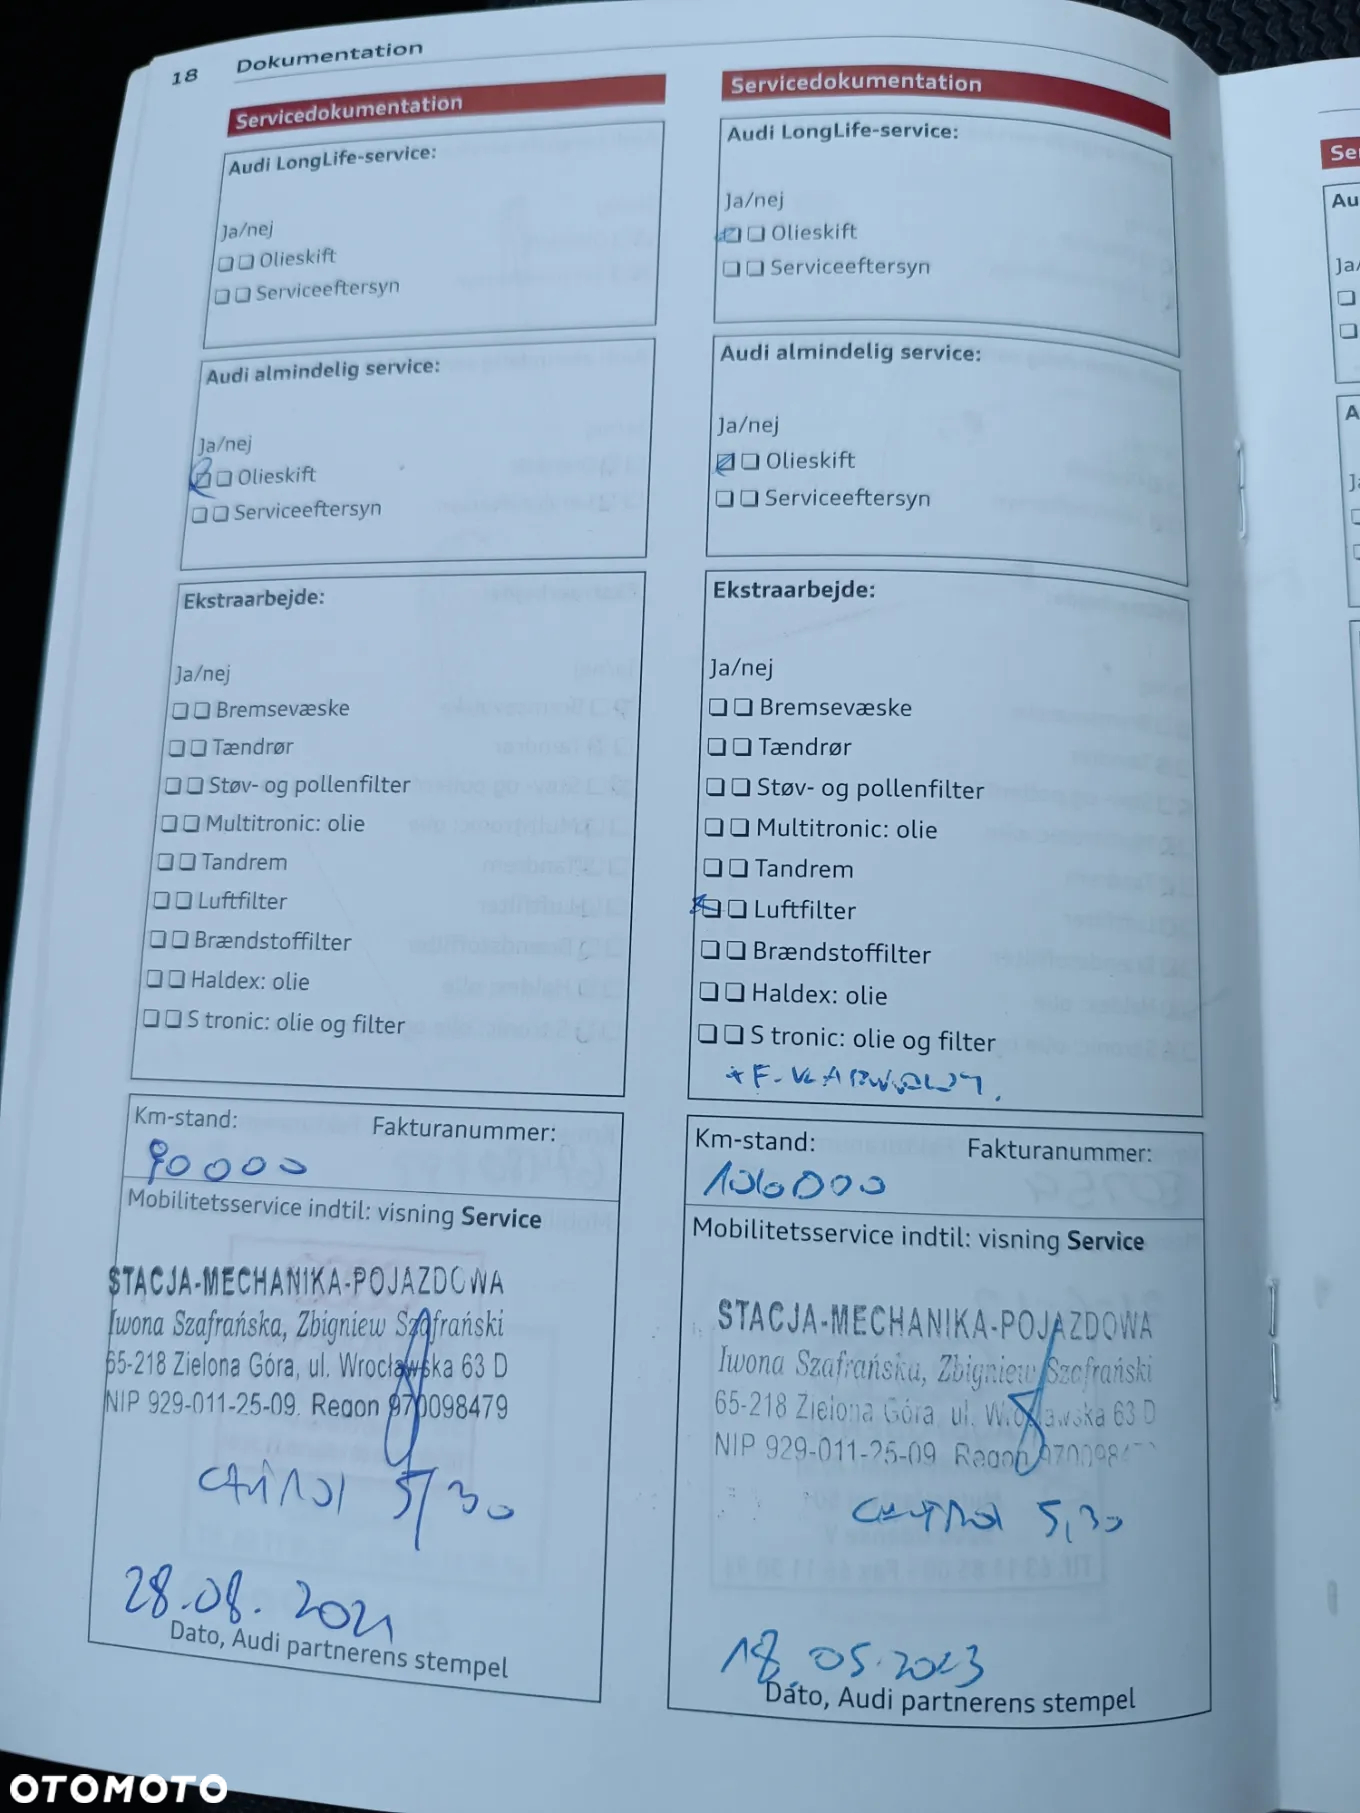 18 Dokumentation
Servicedokumentation
Audi LongLife-service:
Ja/nej
Olieskift
Serviceeftersyn
Audi almindelig service:
Ja/nej
Olieskift
Serviceeftersyn
Ekstraarbejde:
Ja/nej
Bremsevæske
Tændrør
Støv- og pollenfilter
Multitronic: olie
Tandrem
Luftfilter
Brændstoffilter
Haldex: olie
S tronic: olie og filter
Km-stand: Fakturanummer:
90000
Mobilitetsservice indtil: visning Service
STACJA-MECHANIKA-POJAZDOWA
Iwona Szafrańska, Zbigniew Szafrański
65-218 Zielona Góra, ul. Wrocławska 63 D
NIP 929-011-25-09. Regon 970098479
5/30
28.08.2021
Dato, Audi partnerens stempel
Servicedokumentation
Audi LongLife-service:
Ja/nej
Olieskift
Serviceeftersyn
Audi almindelig service:
Ja/nej
Olieskift
Serviceeftersyn
Ekstraarbejde:
Ja/nej
Bremsevæske
Tændrør
Støv- og pollenfilter
Multitronic: olie
Tandrem
Luftfilter
Brændstoffilter
Haldex: olie
S tronic: olie og filter
Km-stand: Fakturanummer:
106000
Mobilitetsservice indtil: visning Service
STACJA-MECHANIKA-POJAZDOWA
Iwona Szafrańska, Zbigniew Szafrański
65-218 Zielona Góra, ul. Wrocławska 63 D
NIP 929-011-25-09 Regon 9700984
5,30
18.05.2023
Dato, Audi partnerens stempel
Se
Au
Ja/
A
OTOMOTO